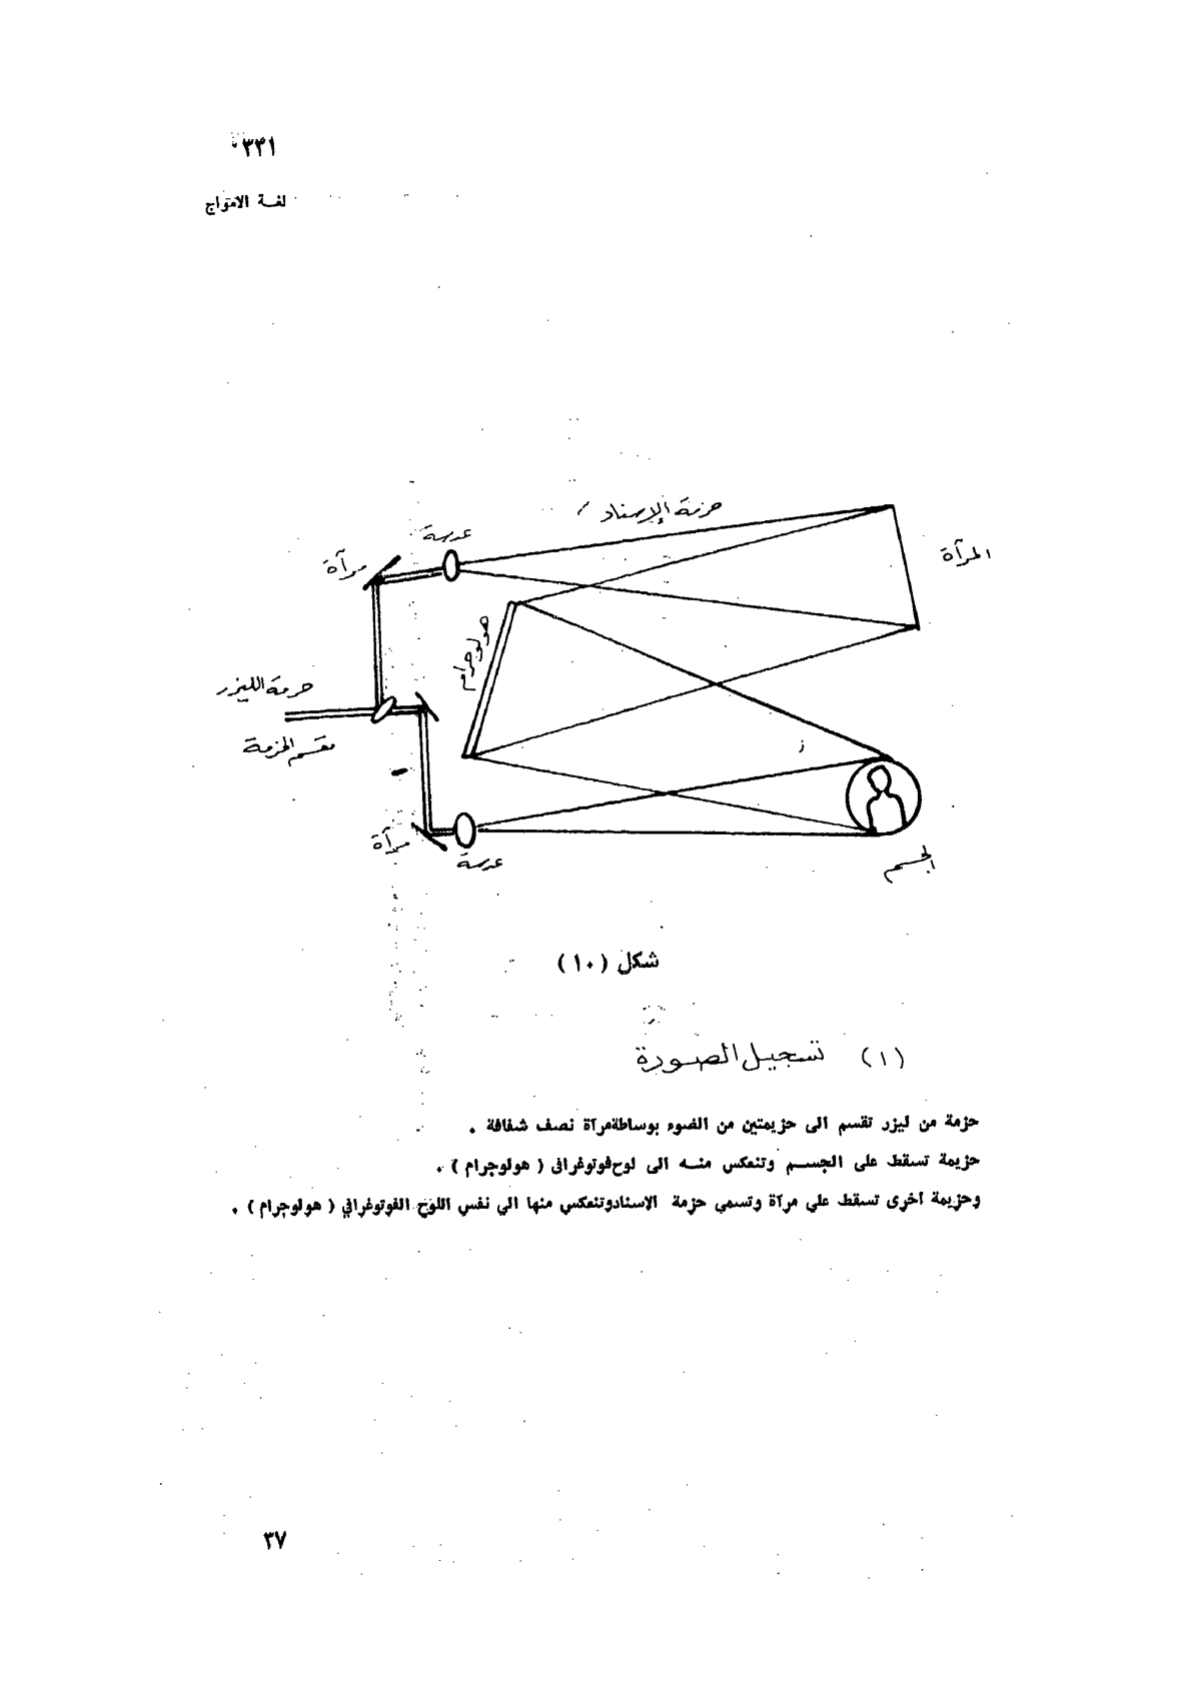 ٣٣١
لغة الامواج
حزمة الإسناد
عدسة
مرآة
المرآة
هولوجرام
حزمة الليزر
مقسم الحزمة
مرآة
عدسة
الجسم
شكل ( ١٠ )
(١) تسجيل الصورة
حزمة من ليزر تقسم الى حزيمتين من الضوء بوساطةمرآة نصف شفافة .
حزيمة تسقط على الجسم وتنعكس منه الى لوح فوتوغرافى ( هولوجرام ) .
وحزيمة أخرى تسقط على مرآة وتسمي حزمة الإسنادوتنعكس منها الي نفس اللوح الفوتوغرافي ( هولوجرام ) .
٣٧